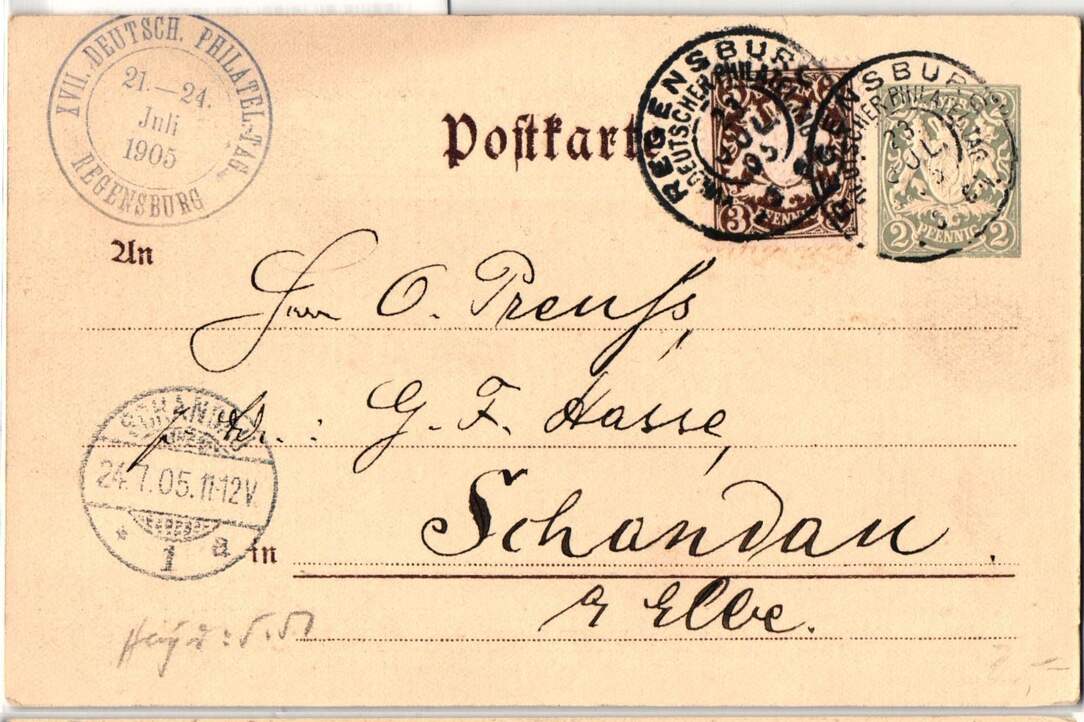 XVII. DEUTSCH. PHILATEL.-TAG.
21.—24.
Juli
1905
REGENSBURG
Postkarte
REGENSBURG
DEUTSCHER PHILATELISTENTAG
JUL
05
3 PFENNIG
REGENSBURG
23
JUL
2 PFENNIG 2
An
Herrn O. Preuß,
p. Adr.: G. F. Hasse,
SCHANDAU
24.7.05.11-12V.
* 1 a
in
Schandau
a Elbe.